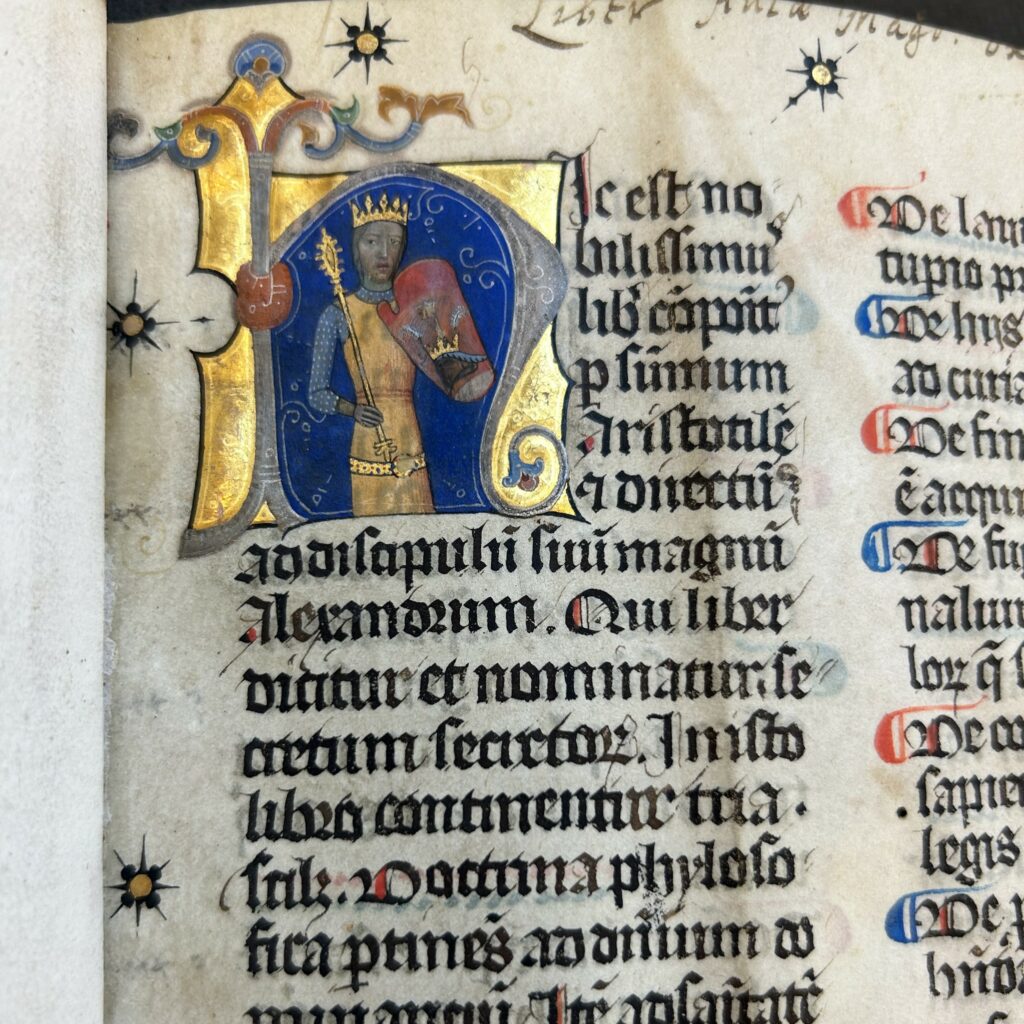 Liber
Hic est no
bilissimu
lib cōpoit
p sūmum
Aristotilē
⁊ directū
ad discipulū suū magnū
Alexandrum. Qui liber
dicitur et nominatur. se
cretum secretoꝝ. In isto
libro continentur tria.
scilꝫ. Doctrina phyloso
fica ptinēs ad dn̄ium do
Itē ad sanitatē
De lau
tupio p
De hus
ad curia
De fin
ē acqui
De fu
nalium
loꝝ q̄
De co
. sapien
legis
De